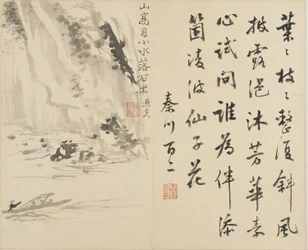 葉葉枝枝整復斜風
披露浥沐芳華素
心試問誰為伴添
箇凌波仙子花
秦川
山高月小水落石出